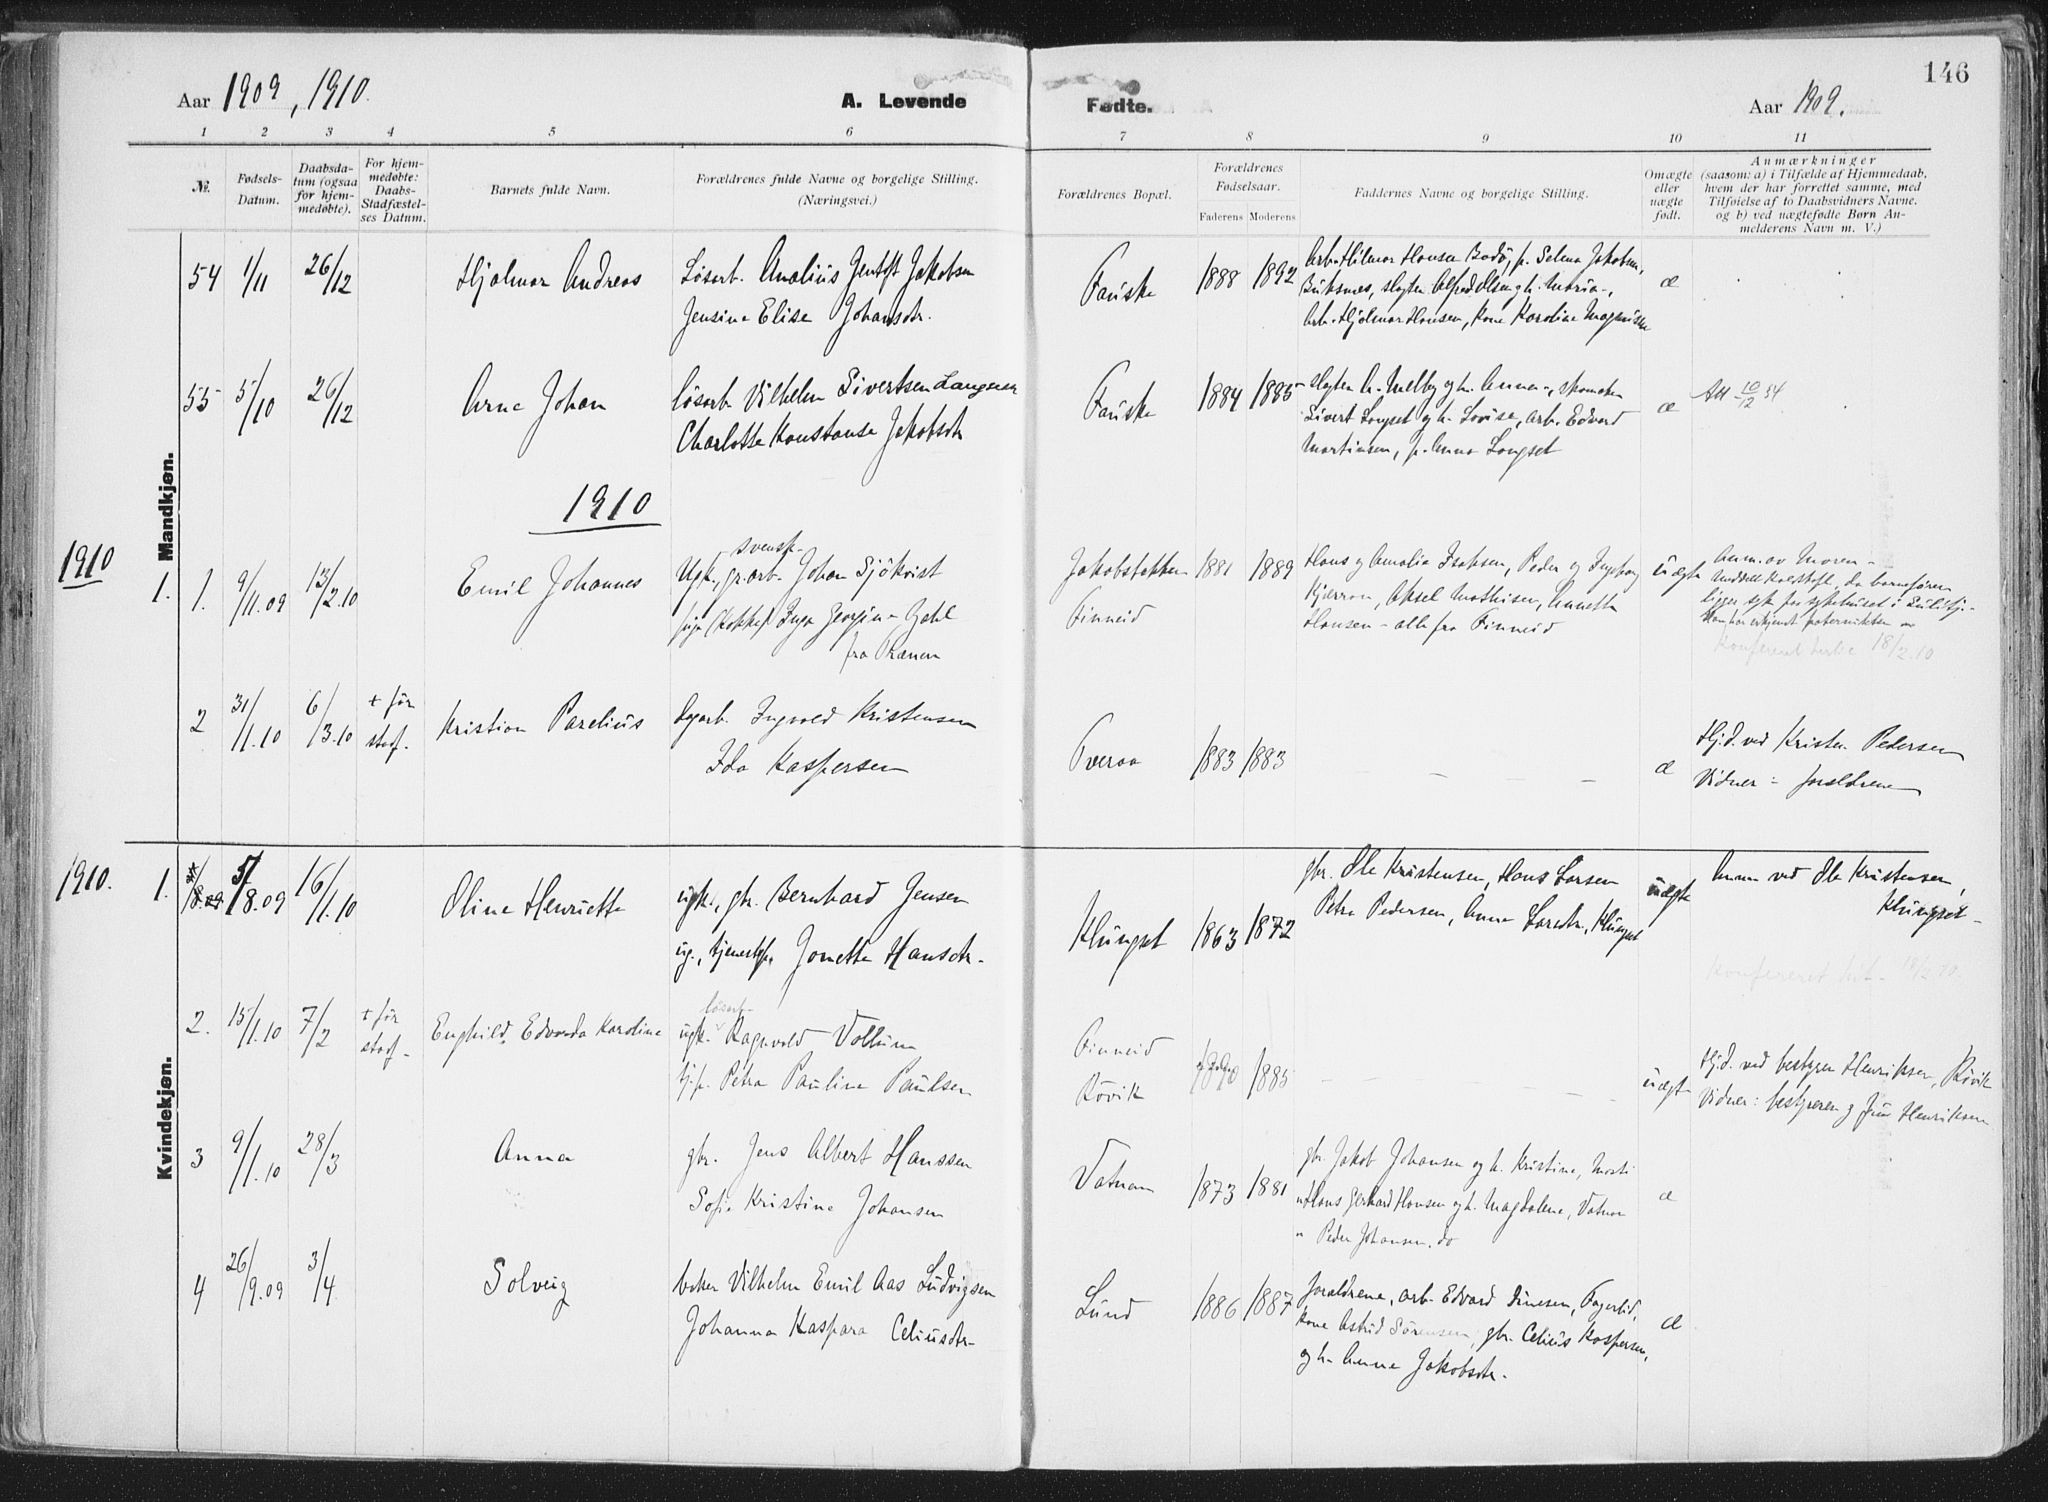 146
Aar 1909, 1910.
A. Levende Fødte.
Aar 1909.
1 2 3 4 5 6 7 8 9 10 11
№.
Fødsels-
Datum.
Daabsda-
tum (ogsaa
for hjem-
medøbte).
For hjem-
medøbte:
Daabs-
Stadfæstel-
ses Datum.
Barnets fulde Navn.
Forældrenes fulde Navne og borgelige Stilling.
(Næringsvei.)
Forældrenes Bopæl.
Forældrenes
Fødselsaar.
Faderens Moderens
Faddernes Navne og borgelige Stilling.
Omægte
eller
uægte
født.
Anmærkninger
(saasom: a) i Tilfælde af Hjemmedaab,
hvem der har forrettet samme, med
Tilføielse af to Daabsvidners Navne.
og b) ved uægtefødte Børn An-
melderens Navn m. V.)
Mandkjøn.
54 1/11 26/12 Hjalmar Andreas
Løsarb. Analius Gentoft Jakobsen
Jensine Elise Johansdtr.
Fauske 1888 1892
Arb. Hilmar Hansen Bodø, p. Selma Jakobsen,
Buksnes, slagter Alfred Olsen og h. Maria,
Arb. Hjalmar Hansen, kone Karoline Magnussen
æ
55 5/10 26/12 Arne Johan
løsarb. Vilhelm Sivertsen Langseter
Charlotte Konstanse Jakobsdtr
Fauske 1884 1885
slagter A. Melby og h. Anna, skomaker
Sivert Langset og h. Lovise, arb. Edvard
Martinsen, p. Anna Langset
æ
Att 10/12 54
1910
1910 1. 1. 9/11.09 13/2.10 Emil Johannes
svensk
Ugk., gr.arb. Johan Sjökvist
pige (Kokke) Inga Georgine Dahl
fra Ranen
Jakobsbakken
Finneid
1881 1889
Hans og Amalia Isaksen, Peder og Ingeborg
Kjærran, Aksel Mathisen, Annette
Hansen - alle fra Finneid
uægte
Anm. av Moren -
ligger syk paa sykehuset i Sulitj.
Han har erkjendt paterniteten
18/2.10
2 31/1.10 6/3.10 + før
stadf.
Kristian Parelius
dagarb. Ingvald Kristensen
Ida Kaspersen
Tveraa 1883 1883 - - - - æ
Hj.d. ved Kristen Pedersen
Vidner: forældrene
Kvindekjøn.
1910. 1. 5/8.09 16/1.10 Oline Henriette
ugk., gbr. Bernhard Jensen
ug., tjenestp. Jonette Hansdtr.
Klungset 1863 1872
gbr. Ole Kristensen, Hans Larsen
Petra Pedersen, Anna Larsdtr., Klungset
uægte
Anm ved Ole Kristensen,
Klungset -
konfereret hit. 18/2.10.
2. 15/1.10 7/2 + før
stadf.
Enghild Edvarda Karoline
løsarb.
ugk. Ragnvald Vollum
tj.p. Petra Pauline Paulsen
Finneid
Røvik
1890 1885 - - - -
uægte
Hj.d. ved bestyrer Henriksen, Røvik
Vidner: bestyreren og fru Henriksen
3 9/1.10 28/3 Anna
gbr. Jens Albert Hanssen
Sofie Kristine Johansen
Vatnan 1873 1881
gbr. Jakob Johansen og h. Kristine, Morti
" Hans Gerhard Hansen og h. Magdalene, Vatnan
" Peder Johansen, do
æ
4 26/9.09 3/4 Solveig
baker Vilhelm Emil Aas Ludvigsen
Johanna Kaspara Celiusdtr.
Lund 1886 1887
Forældrene, arb. Edvard Dinesen, Fagerlid,
kone Astrid Sørensen, gbr. Celius Kaspersen,
og h. Anna Jakobsdtr.
æ